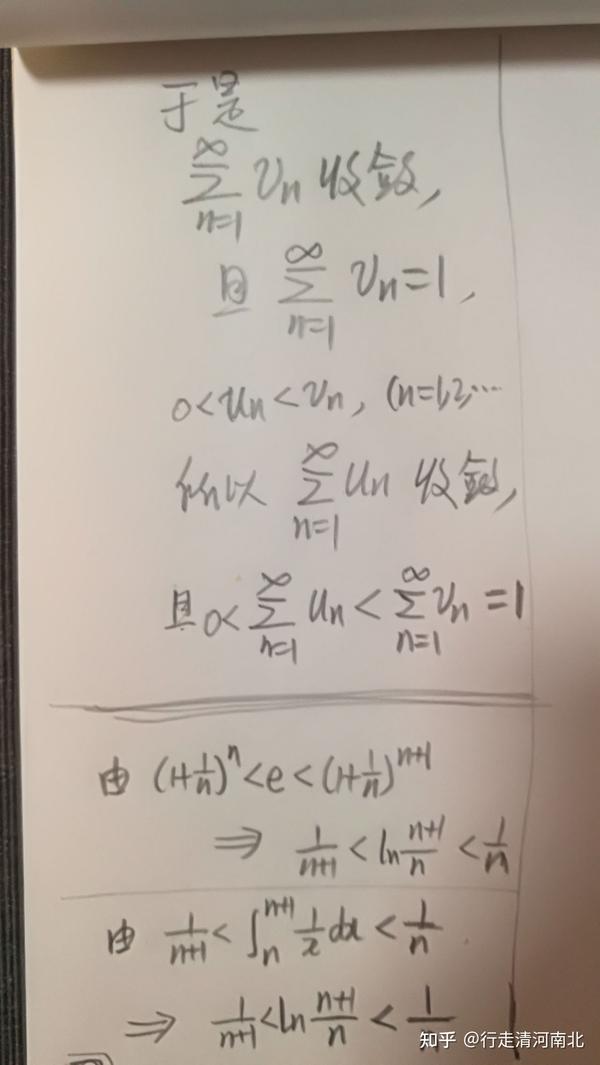 于是
∑_{n=1}^{∞} v_n 收敛,
且 ∑_{n=1}^{∞} v_n=1,
0<u_n<v_n, (n=1,2,…
所以 ∑_{n=1}^{∞} u_n 收敛,
且 0<∑_{n=1}^{∞} u_n<∑_{n=1}^{∞} v_n=1
由 (1+1/n)^n<e<(1+1/n)^{n+1}
⇒ 1/(n+1)<ln (n+1)/n<1/n
由 1/(n+1)<∫_n^{n+1} 1/x dx<1/n
⇒ 1/(n+1)<ln (n+1)/n<1/n
知乎 @行走清河南北